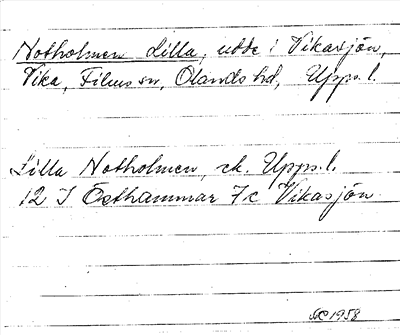 Notholmen Lilla, udde i Vikasjön,
Vika, Films sn, Olands hd, Upps. l.
Lilla Notholmen, ek. Upps. l.
12 I Östhammar 7c Vikasjön
1958